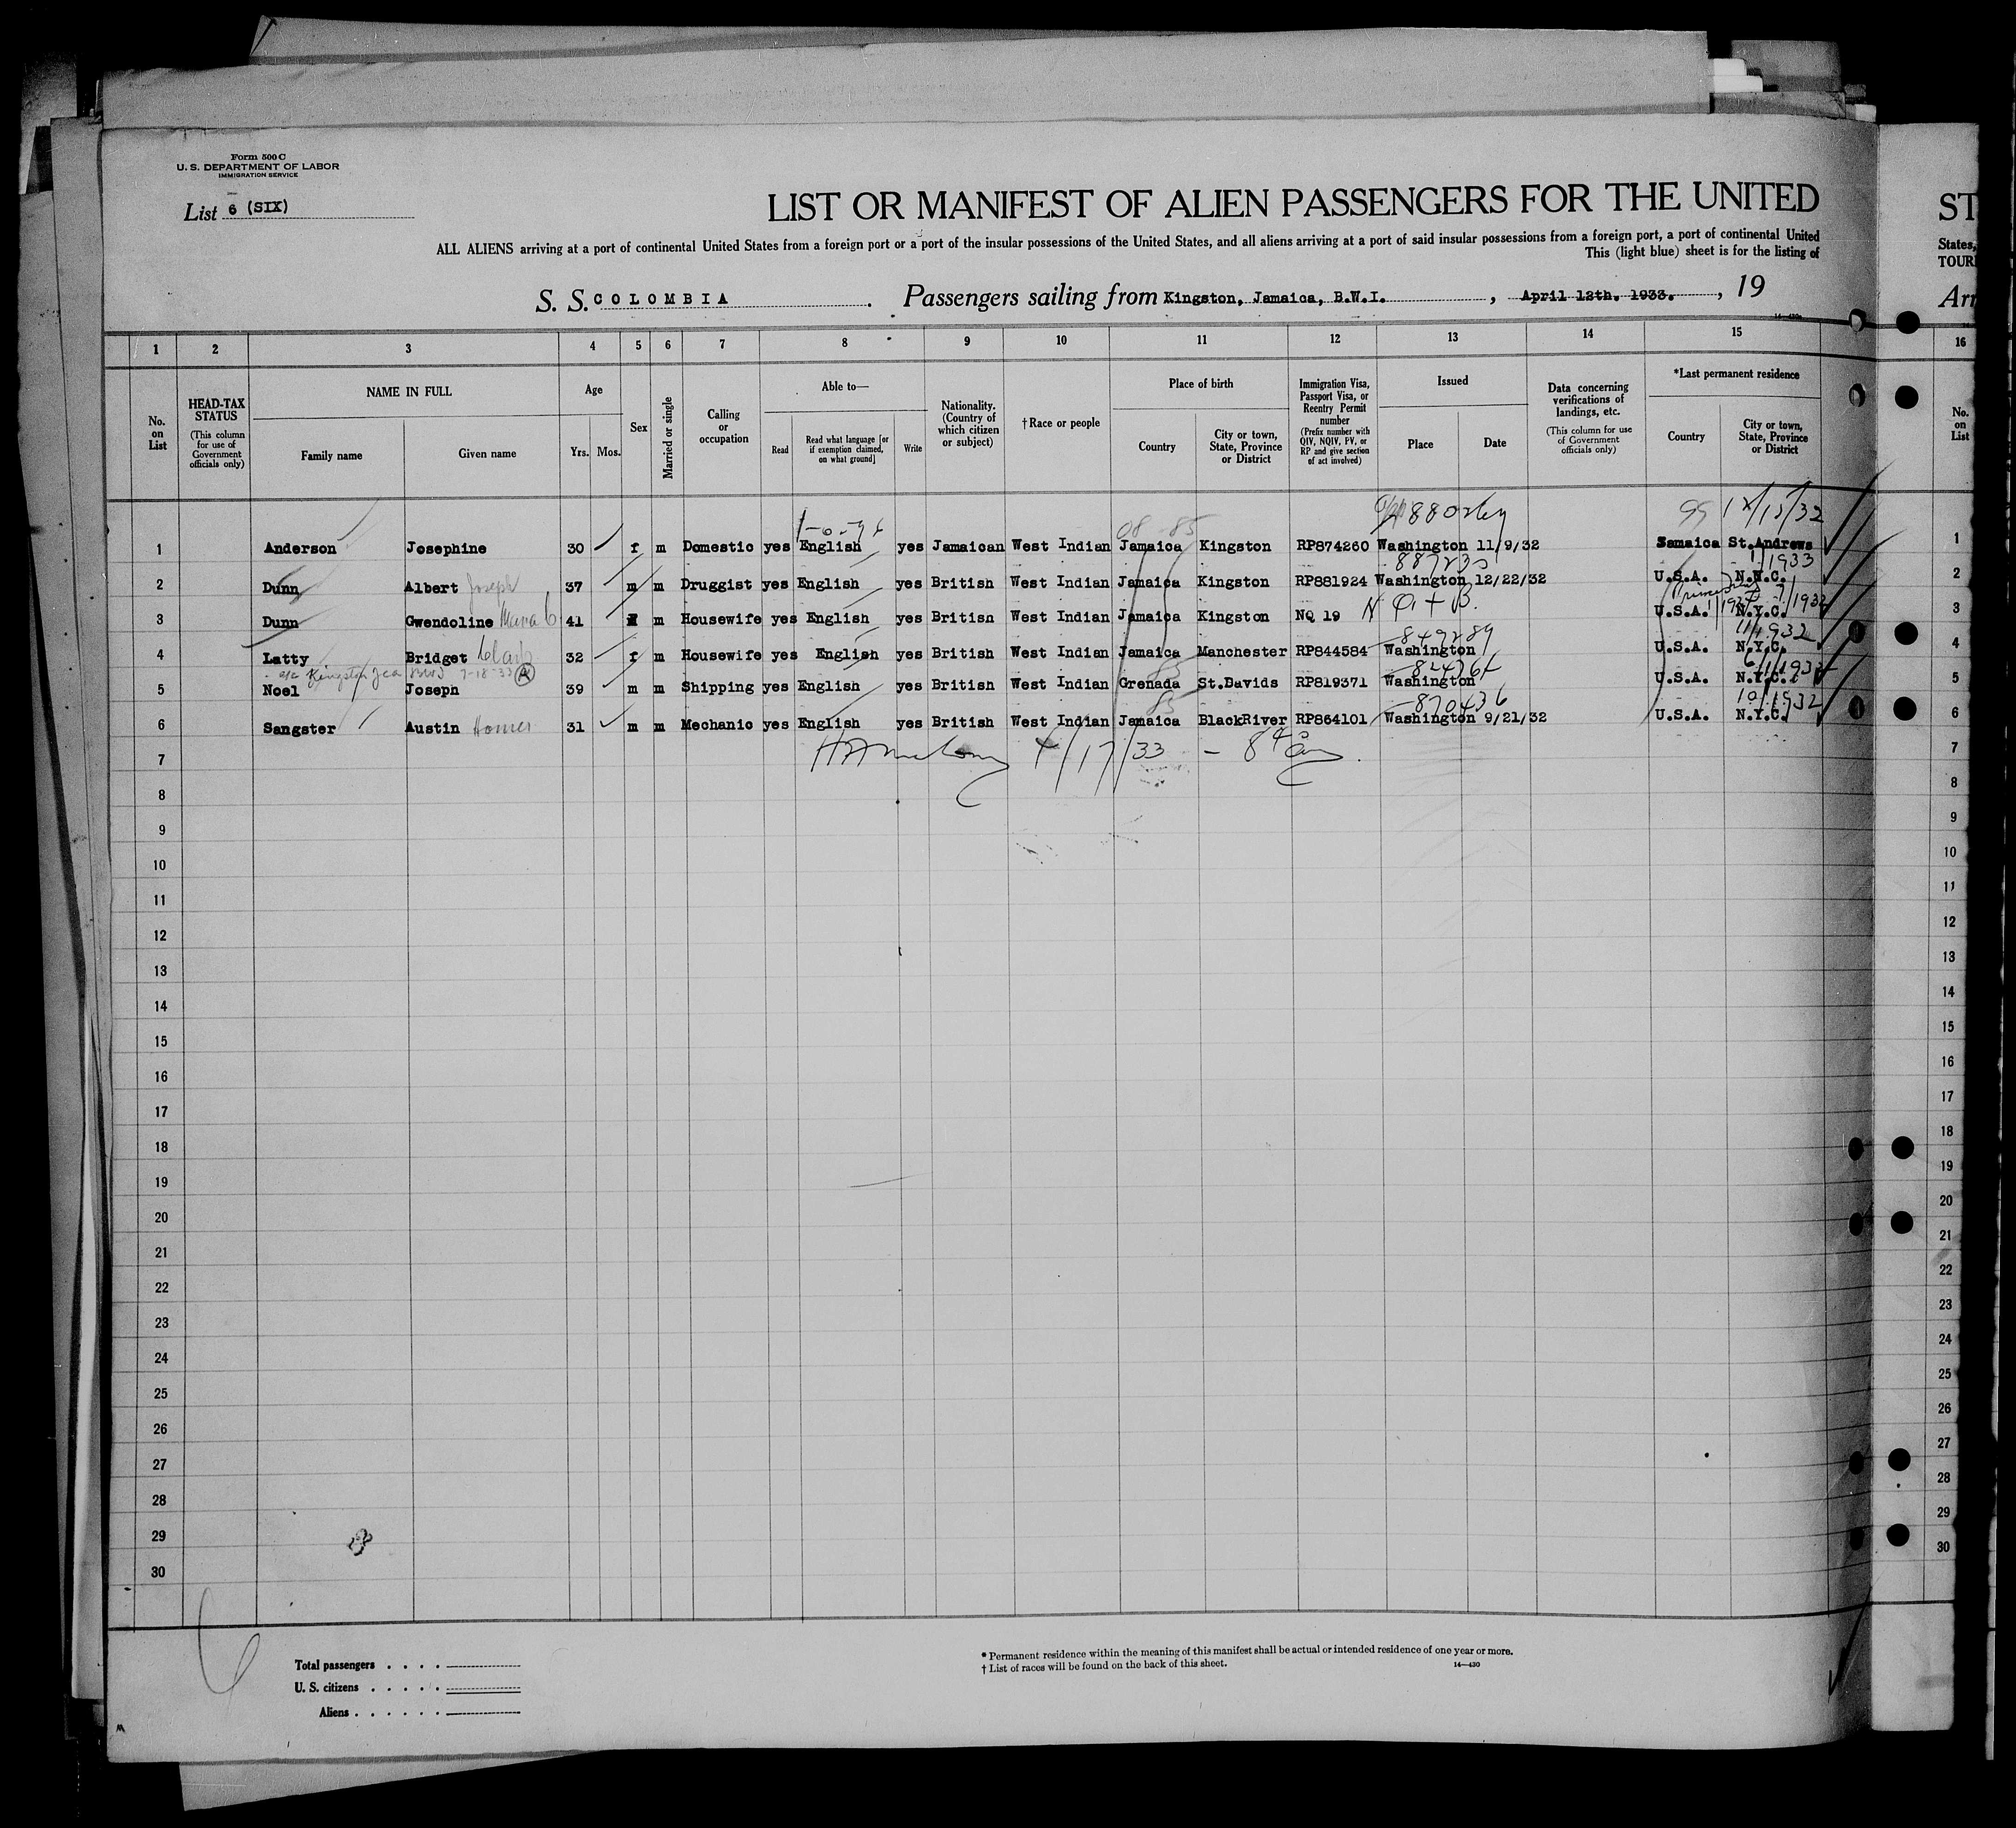 Form 500 C
U. S. DEPARTMENT OF LABOR
IMMIGRATION SERVICE
List 6 (SIX)
LIST OR MANIFEST OF ALIEN PASSENGERS FOR THE UNITED
ST
ALL ALIENS arriving at a port of continental United States from a foreign port or a port of the insular possessions of the United States, and all aliens arriving at a port of said insular possessions from a foreign port, a port of continental United
States,
This (light blue) sheet is for the listing of
TOUR
S. S. COLOMBIA . Passengers sailing from Kingston, Jamaica, B.W.I. , April 12th. 1933. , 19
Arr
1 2 3 4 5 6 7 8 9 10 11 12 13 14 15 16
No. on List
HEAD-TAX STATUS (This column for use of Government officials only)
NAME IN FULL
Family name
Given name
Age
Yrs. Mos.
Sex
Married or single
Calling or occupation
Able to—
Read
Read what language [or if exemption claimed, on what ground]
Write
Nationality. (Country of which citizen or subject)
† Race or people
Place of birth
Country
City or town, State, Province or District
Immigration Visa, Passport Visa, or Reentry Permit number (Prefix number with QIV, NQIV, PV, or RP and give section of act involved)
Issued
Place
Date
Data concerning verifications of landings, etc. (This column for use of Government officials only)
*Last permanent residence
Country
City or town, State, Province or District
No. on List
08 85 99 12/15/32
1 Anderson Josephine 30 f m Domestic yes English yes Jamaican West Indian Jamaica Kingston RP874260 Washington 11/9/32 Jamaica St.Andrews 1
887233 1/1933
2 Dunn Albert Joseph 37 m m Druggist yes English yes British West Indian Jamaica Kingston RP881924 Washington 12/22/32 U.S.A. N.Y.C. 2
3 Dunn Gwendoline 41 m Housewife yes English yes British West Indian Jamaica Kingston NQ 19 U.S.A. N.Y.C. 3
849289 11/1932
4 Latty Bridget 32 f m Housewife yes English yes British West Indian Jamaica Manchester RP844584 Washington U.S.A. N.Y.C. 4
Kingston Jca BWI 7-18-33 82436
5 Noel Joseph 39 m m Shipping yes English yes British West Indian Grenada St.Davids RP819371 Washington U.S.A. N.Y.C. 5
85 870436 10/1932
6 Sangster Austin Homer 31 m m Mechanic yes English yes British West Indian Jamaica BlackRiver RP864101 Washington 9/21/32 U.S.A. N.Y.C. 6
7 4/17/33 - 7
8 8
9 9
10 10
11 11
12 12
13 13
14 14
15 15
16 16
17 17
18 18
19 19
20 20
21 21
22 22
23 23
24 24
25 25
26 26
27 27
28 28
29 29
30 30
Total passengers . . . .
U. S. citizens . . . . .
Aliens . . . . . .
* Permanent residence within the meaning of this manifest shall be actual or intended residence of one year or more.
† List of races will be found on the back of this sheet.
14—430